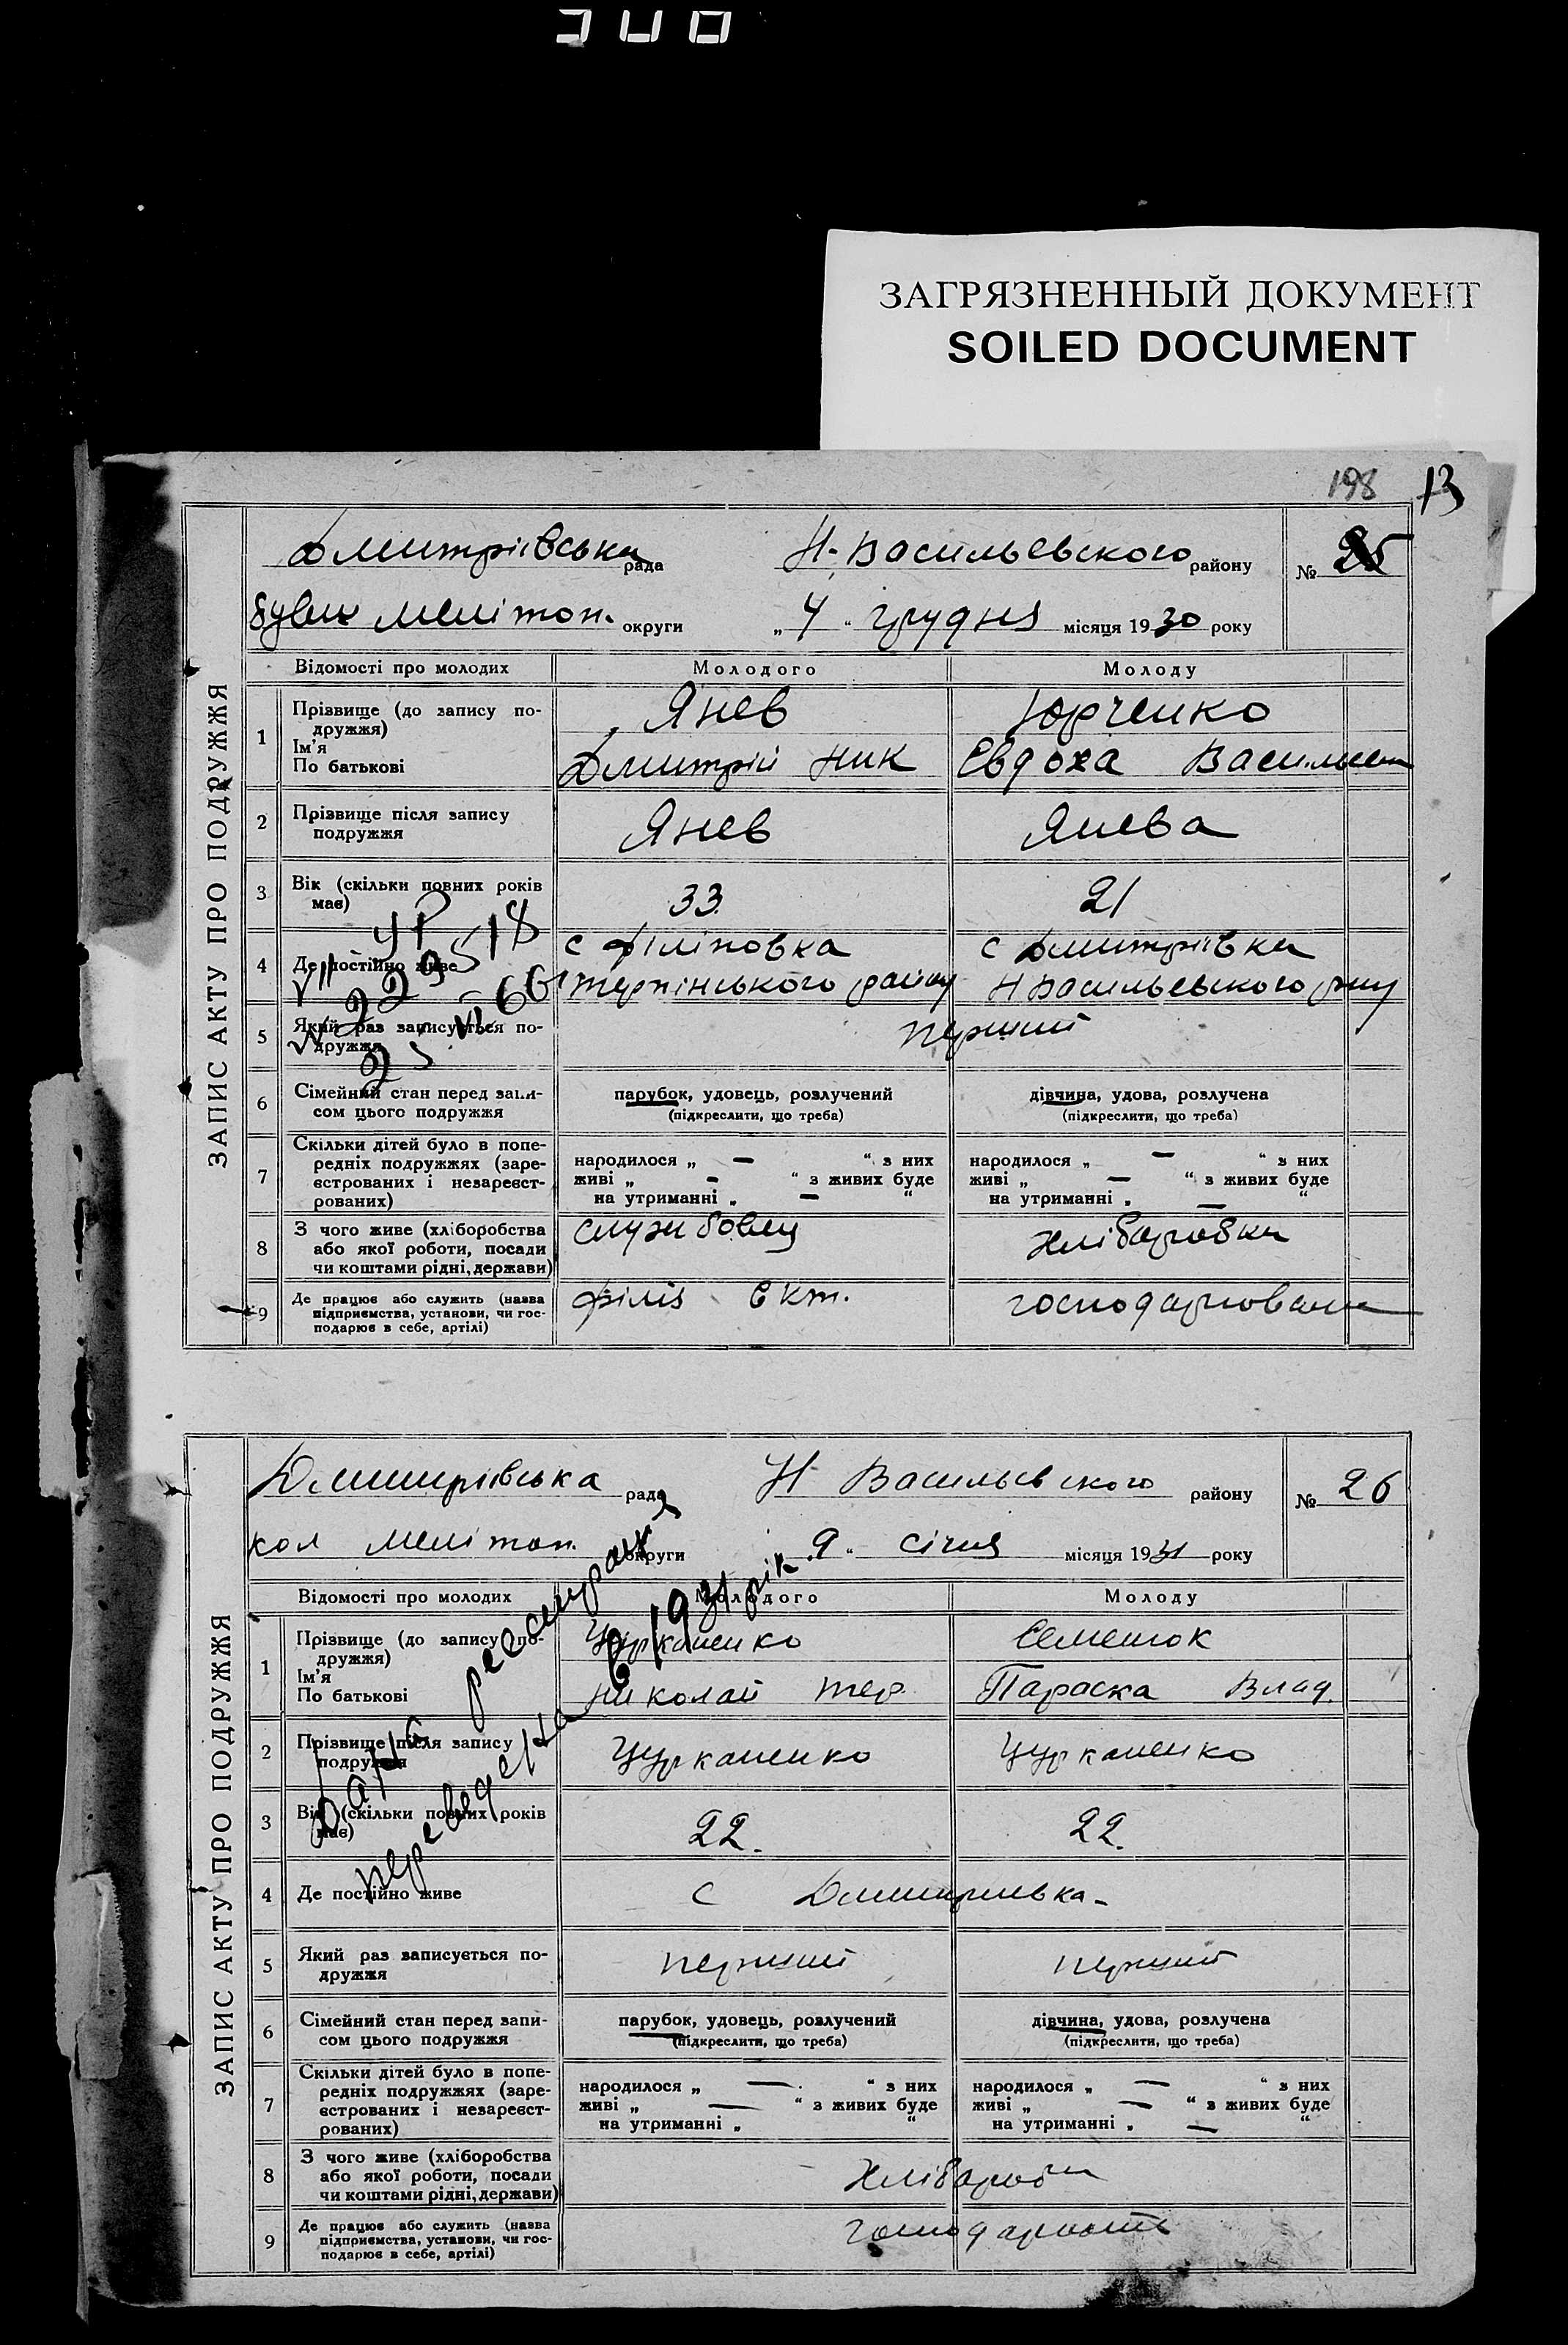 ЗАГРЯЗНЕННЫЙ ДОКУМЕНТ
SOILED DOCUMENT
198 13
ЗАПИС АКТУ ПРО ПОДРУЖЖЯ
Дмитрiiвська рада Н-Васильевского району № 25
бувш мелітоп. округи „ 4 “ грудня місяця 1930 року
Відомості про молодих Молодого Молоду
1 Прізвище (до запису по-
дружжя)
Ім'я
По батькові
Янев Юрченко
Дмитрій Ник Євдоха
2 Прізвище після запису
подружжя
Янев Янева
3 Вік (скільки повних років
має)
33 21
4 Де постійно живе
с Філіповка с Дмитріівка
терпінського району Н Васильевского
5 Який раз записується по-
дружжя
перший
6 Сімейний стан перед запи-
сом цього подружжя
парубок, удовець, розлучений дівчина, удова, розлучена
(підкреслити, що треба) (підкреслити, що треба)
7 Скільки дітей було в попе-
редніх подружжях (заре-
єстрованих і незареєст-
рованих)
народилося „ — “ з них народилося „ — “ з них
живі „ — “ з живих буде живі „ — “ з живих буде
на утриманні „ — “ на утриманні „ — “
8 З чого живе (хліборобства
або якої роботи, посади
чи коштами рідні, держави)
службовец
9 Де працює або служить (назва
підприємства, установи, чи гос-
подарює в себе, артілі)
ЗАПИС АКТУ ПРО ПОДРУЖЖЯ
Дмитрівська рада Н Васильевского району № 26
кол мелітоп. округи „ 9 “ січня місяця 1931 року
Відомості про молодих Молодого Молоду
1 Прізвище (до запису по-
дружжя)
Ім'я
По батькові
Цурканенко Семенюк
Николай тер. Параска Влад.
2 Прізвище після запису
подружжя
Цурканенко Цурканенко
3 Вік (скільки повних років
має)
22. 22.
4 Де постійно живе
с Дмитрівка-
5 Який раз записується по-
дружжя
перший перший
6 Сімейний стан перед запи-
сом цього подружжя
парубок, удовець, розлучений дівчина, удова, розлучена
(підкреслити, що треба) (підкреслити, що треба)
7 Скільки дітей було в попе-
редніх подружжях (заре-
єстрованих і незареєст-
рованих)
народилося „ — “ з них народилося „ — “ з них
живі „ — “ з живих буде живі „ — “ з живих буде
на утриманні „ “ на утриманні „ — “
8 З чого живе (хліборобства
або якої роботи, посади
чи коштами рідні, держави)
9 Де працює або служить (назва
підприємства, установи, чи гос-
подарює в себе, артілі)
переведена в 1931 рік